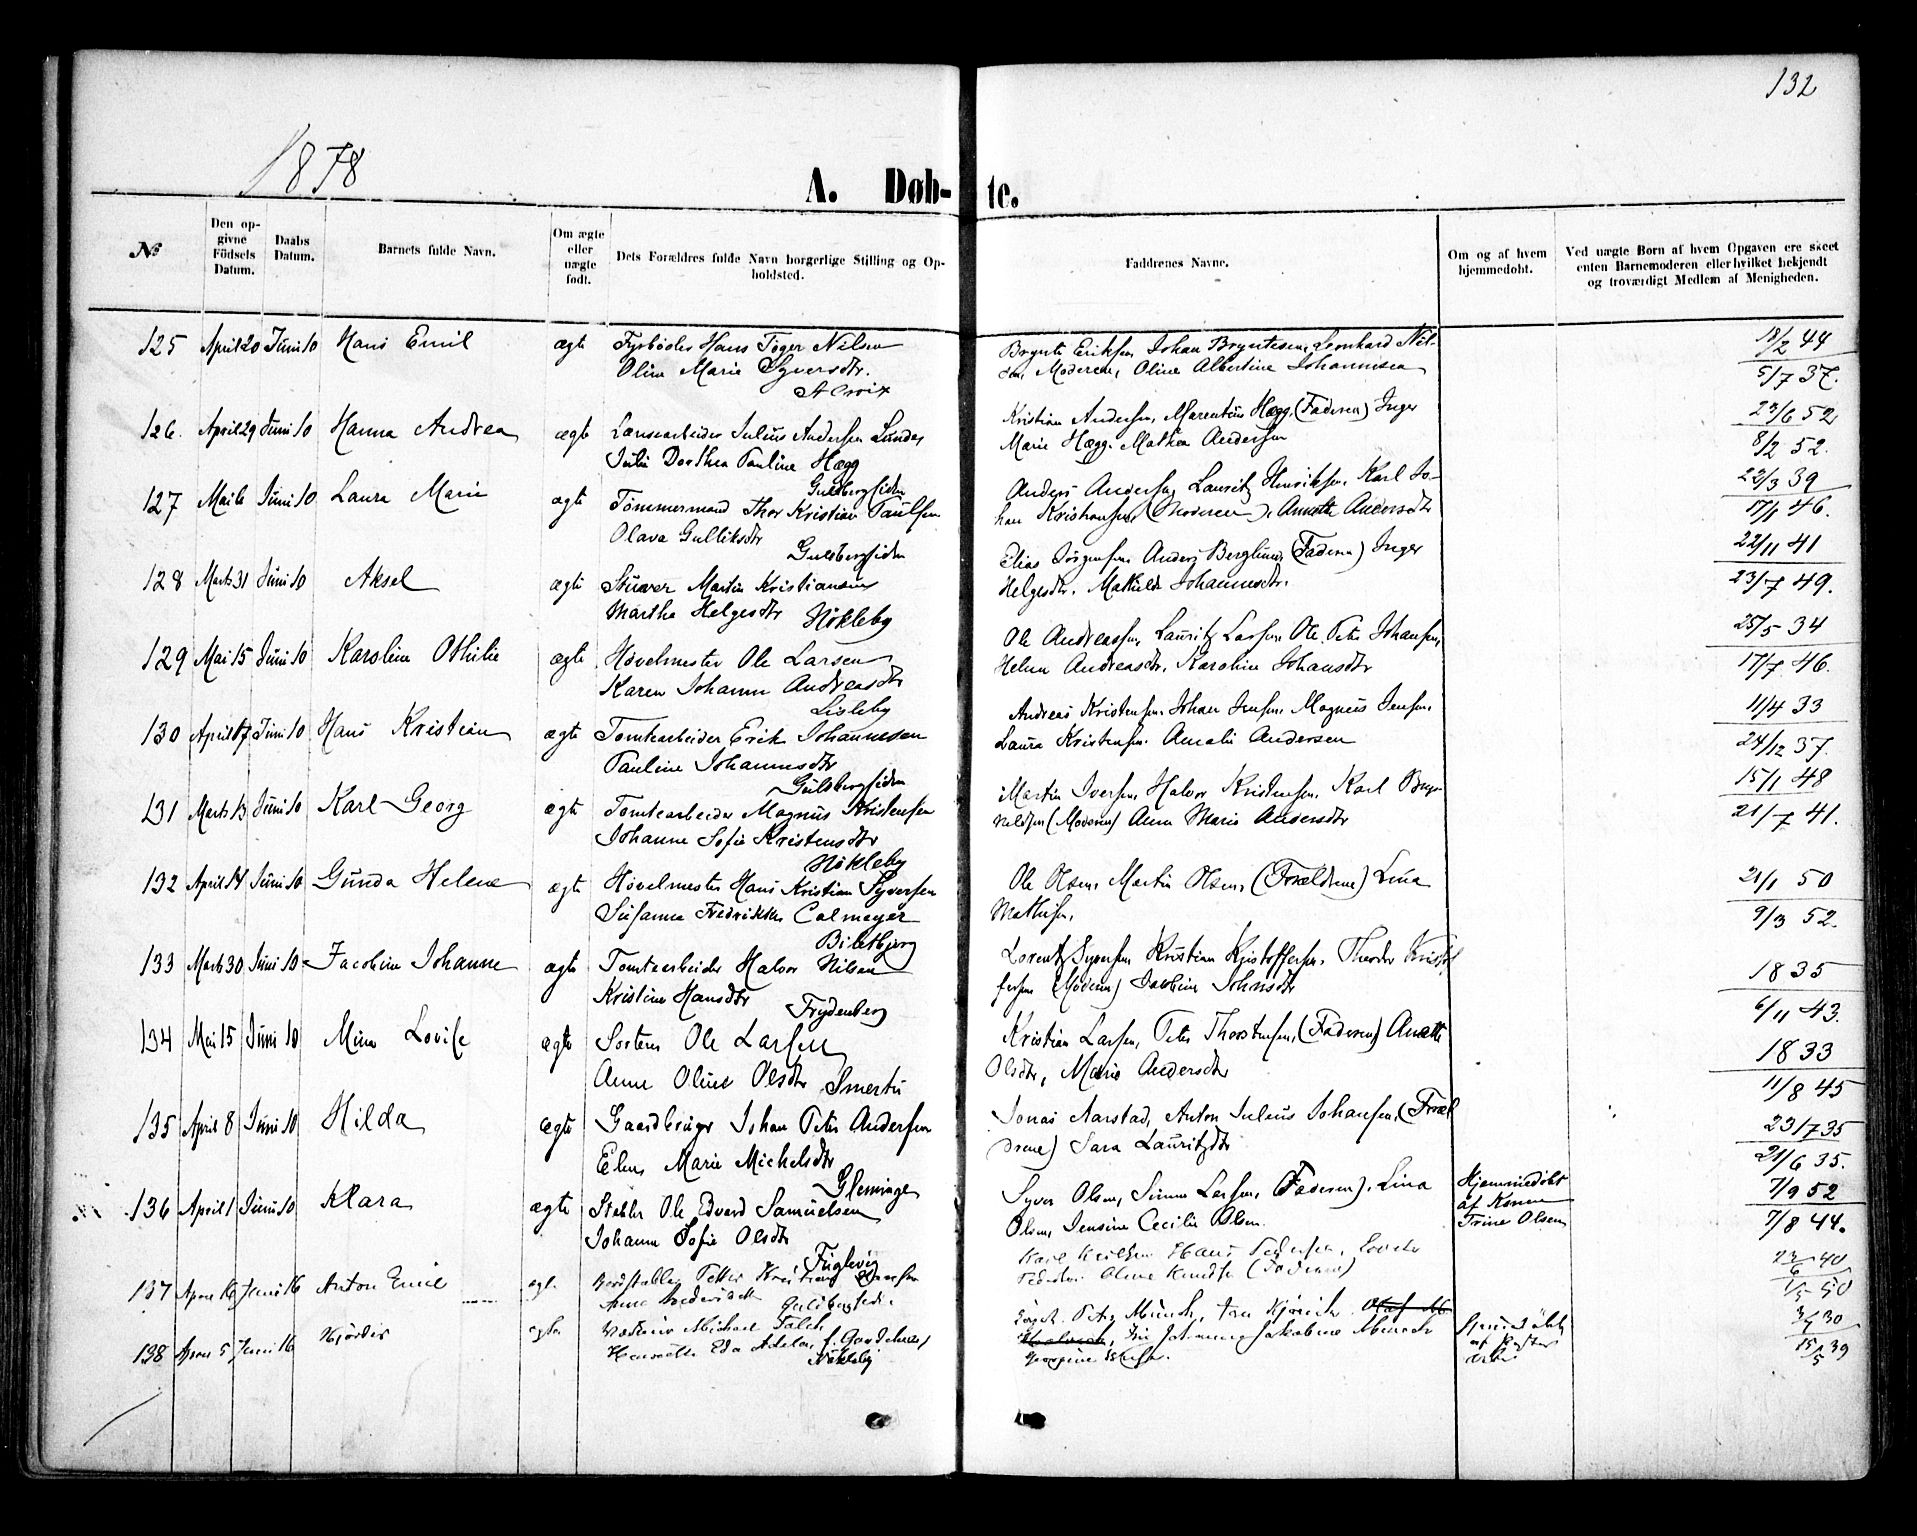 132
1878
A. Døb- te.
№
Den opgivne Födsels Datum.
Daabs Datum.
Barnets fulde Navn.
Om ægte eller uægte født.
Dets Forældres fulde Navn borgerlige Stilling og Opholdsted.
Faddrenes Navne.
Om og af hvem hjemmedobt.
Ved uægte Born af hvem Opgaven ere skeet enten Barnemoderen eller hvilket bekjendt og troværdigt Medlem af Menigheden.
125 April 20 Juni 10 Hans Emil ægte Fyrbøder Hans Töger Nilsen
Oline Marie Syversdtr.
Brynte Eriksen, Johan Bryntesen, Leonhard Nil-
sen, Moderen, Oline Albertine Johannesen
18/2 44
5/7 37.
126. April 29 Juni 10 Hanna Andrea ægte Lænsearbeider Julius Andersen Lunde,
Julie Dorthea Pauline Hægg
Gulsbergsiden
Kristian Andersen, Marentius Hægg, (Faderen) Inger
Marie Hægg. Mathea Andersen
23/6 52
8/2 52.
127 Mai 6 Juni 10 Laura Marie ægte Tömmermand Thor Kristian Paulsen
Olava Gulliksdtr
Gulsbergsiden
Anders Andersen, Lauritz Henriksen, Karl Jo-
han Kristiansen, (Moderen), Anette Andersdtr
23/3 39
17/1 46.
128 Marts 31 Juni 10 Aksel ægte Stuver Martin Kristiansen
Martha Helgesdtr Nökleby
Elias Jörgensen, Anders Berglund, (Faderen) Inger
Helgesdtr. Mathilde Johannesdtr.
22/11 41
23/7 49.
129 Mai 15 Juni 10 Karoline Othilie ægte Høvelmester Ole Larsen
Karen Johanne Andreasdtr
Lisleby
Ole Andreassen, Lauritz Larsen, Ole Peter Johansen,
Helene Andreasdtr, Karoline Johansdtr
25/5 34
17/7 46.
130 April 17 Juni 10 Hans Kristian ægte Tomtearbeider Erik Johannesen
Pauline Johannesdtr
Gulsbergsiden
Andreas Kristensen, Johan Jensen, Magnus Jensen,
Laura Kristensen. Amalie Andersen
11/4 33
24/12 37.
131 Marts 13 Juni 10 Karl Georg ægte Tomtearbeider Magnus Kristensen
Johanne Sofie Kristensdtr
Nökleby
Martin Iversen, Halvor Kristensen, Karl Bryn-
nildsen (Moderen) Anna Marie Andersdtr
15/1 48
21/7 41.
132 April 14 Juni 10 Gunda Helene ægte Høvelmester Hans Kristian Syversen
Susanna Fredrikke Colmeyer
Ole Olsen, Martin Olsen, (Forældrene) Lina
Mathisen,
21/1 50
9/3 52.
133 Marts 30 Juni 10 Jacobine Johanne ægte Tomtearbeider Halvor Nilsen
Kristine Hansdtr Frydenberg
Lorentz Syversen Kristian Kristoffersen, Theodor Kristof
fersen (Moderen) Jacobine Johnsdtr
18 35
6/11 43.
134 Mai 15 Juni 10 Mina Lovise ægte Sorterer Ole Larsen
Anne Oline Olsdtr Smertu
Kristian Larsen, Peter Thorstensen, (Faderen) Anette
Olsdtr, Marie Andersdtr
18 33
11/8 45
135 April 8 Juni 10 Hilda ægte Gaardbruger Johan Peter Andersen
Elen Marie Michelsdtr
Glemminge
Jonas Aarstad, Anton Julius Johansen, (Foræl
drene) Sara Lauritzdtr
23/7 35
21/6 35.
136 April 1 Juni 10 Klara ægte Stabler Ole Edvard Samuelsen
Johanne Sofie Olsdtr
Fuglevig
Syver Olsen, Simen Larsen, (Faderen), Lina
Olsen, Jensine Cecilie Olsen.
Hjemmedöbt
af Konen
Trine Olsen
7/9 52
7/8 44.
137 April 16 Juni 16 Anton Emil ægte Bordstabler Petter Kristian
Karl Hans Pedersen,
Oline Knudsen (Faderen)
23/6 40
1/5 50
138 April 5 Juni 16 Hjördis ægte Michael Falch
Henriette Eda
Nökleby
Peter Münch,
Johanne Jakobine Münch
3/5 30
15/5 39